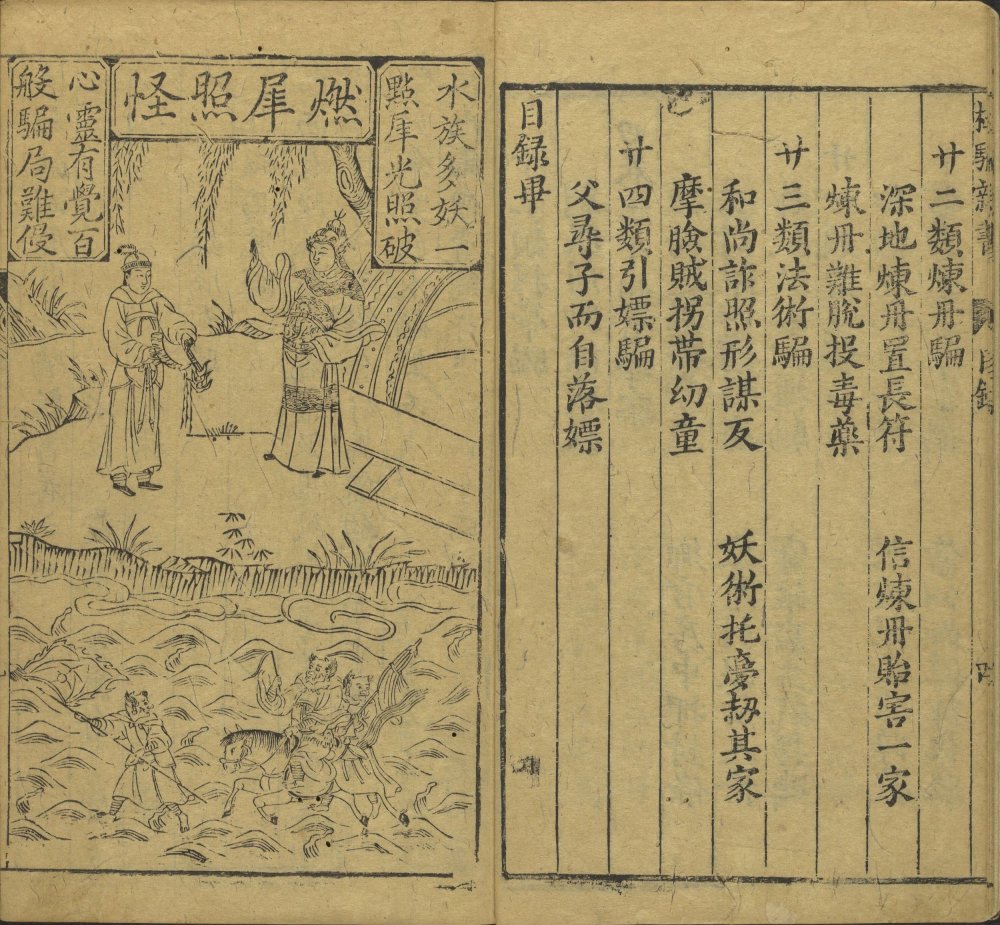 廿二類煉丹騙
深地煉丹置長符
信煉丹貽害一家
煉丹難脫投毒藥
廿三類法術騙
和尚詐照形謀反
妖術托夢刼其家
摩臉賊拐帶幼童
廿四類引嫖騙
父尋子而自落嫖
目録畢
燃犀照怪
水族多妖一
點犀光照破
心靈有覺百
般騙局難侵